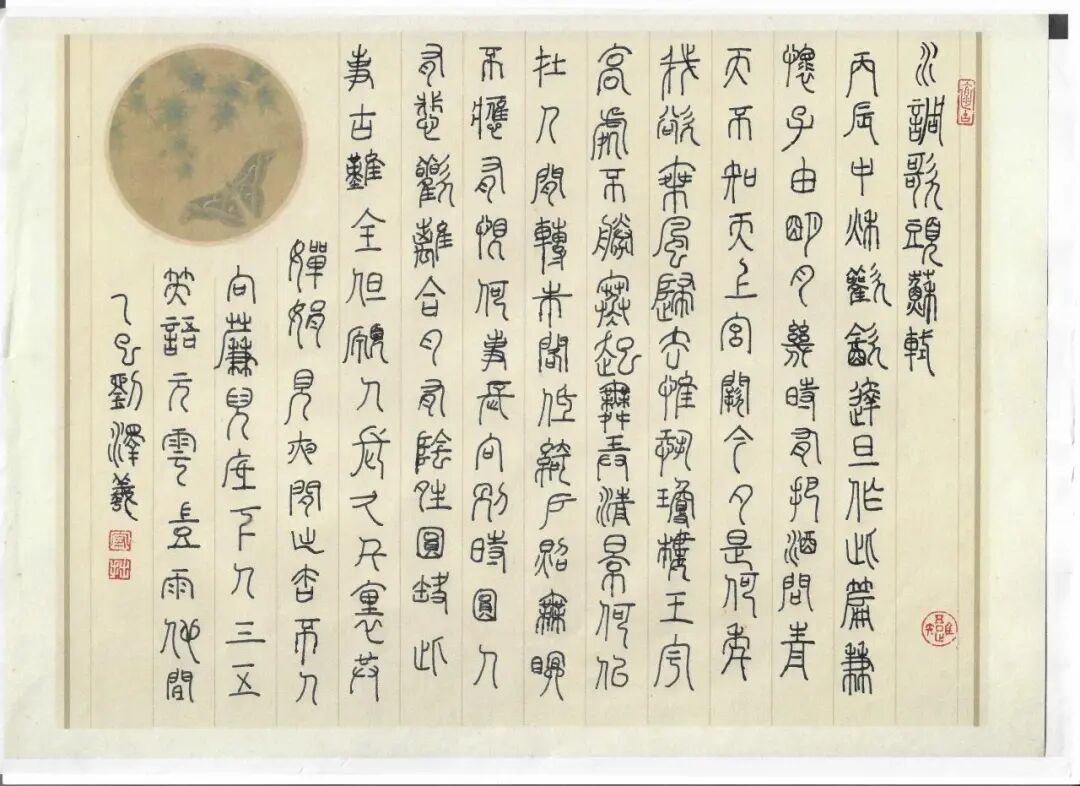 水調歌頭蘇軾
丙辰中秋歡飲達旦作此篇兼
懷子由明月幾時有把酒問青
天不知天上宮闕今夕是何年
我欲乘風歸去惟恐瓊樓玉宇
高處不勝寒起舞弄清景何似
在人間轉朱閣低綺戶照無眠
不應有恨何事長向別時圓人
有悲歡離合月有陰晴圓缺此
事古難全但願人長久千里共
嬋娟見夜間不人
向簾兒底下人三五
笑語元雲雨間
乙巳劉澤羲